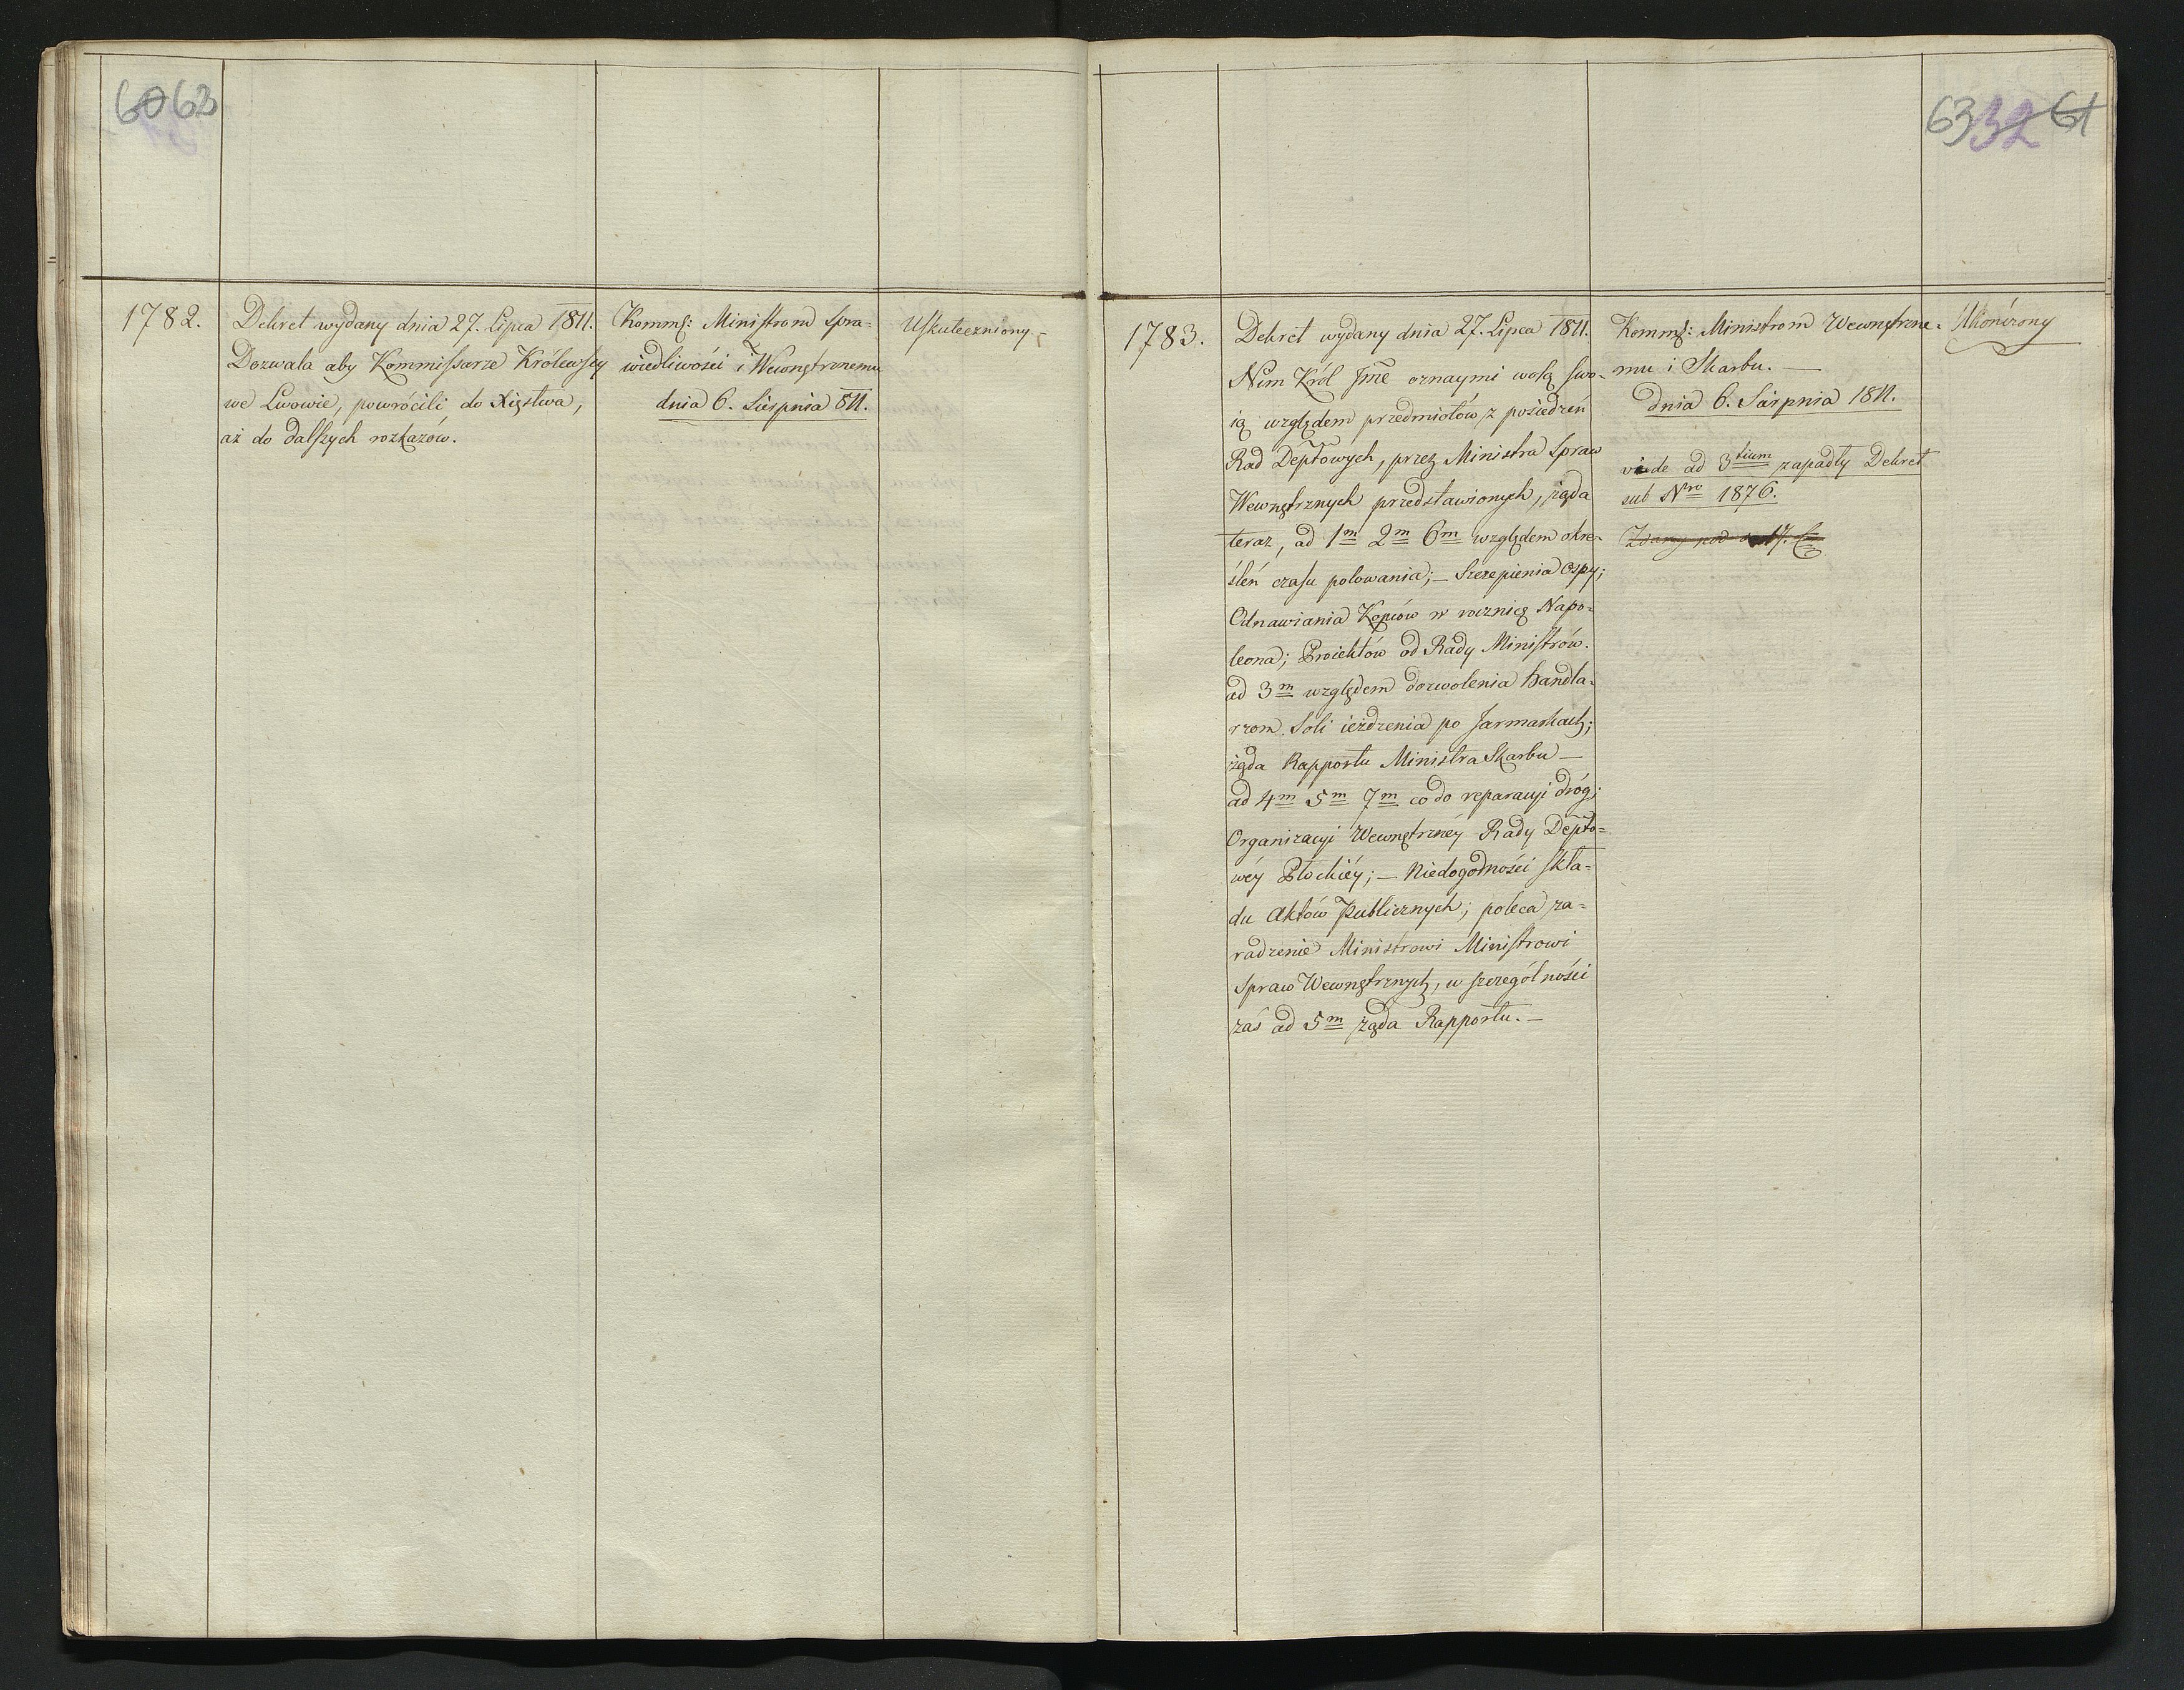 60 62
1782.
Dekret wydany dnia 27. Lipca 1811.
Dozwala aby Kommissarze Królewscy
we Lwowie, powrócili do Xięstwa,
aż do dalszych rozkazów.
Komms: Ministrom Spra-
wiedliwości i Wewnętrznemu
dnia 6. Sierpnia 811.
Uskuteczniony.
63 32 61
1783.
Dekret wydany dnia 27. Lipca 1811.
Nim Król Jmć oznaymi wolą swo-
ią względem przedmiotów z posiedzeń
Rad Deptowych, przez Ministra Spraw
Wewnętrznych przedstawionych, żąda
teraz, ad 1m 2m 6m względem okre-
śleń czasu polowania; – Szczepienia Ospy;
Odnawiania Kopców w rocznicę Napo-
leona; Proiektów od Rady Ministrów.
ad 3m względem dozwolenia handla-
rzom Soli ieżdzenia po Jarmarkach;
żąda Rapportu Ministra Skarbu –
ad 4m 5m 7m co do reparacyi dróg;
Organizacyi Wewnętrznéy Rady Depto-
wéy Płockiéy; – Niedogodności skła-
du Aktów Publicznych; poleca za-
radzenie Ministrowi Ministrowi
Spraw Wewnętrznych, w szczególności
zaś ad 5m żąda Rapportu. –
Komms: Ministrom Wewnętrzne-
mu i Skarbu. –
dnia 6. Sierpnia 1811.
vide ad 3tium zapadły Dekret
sub Nro 1876.
Ukończony